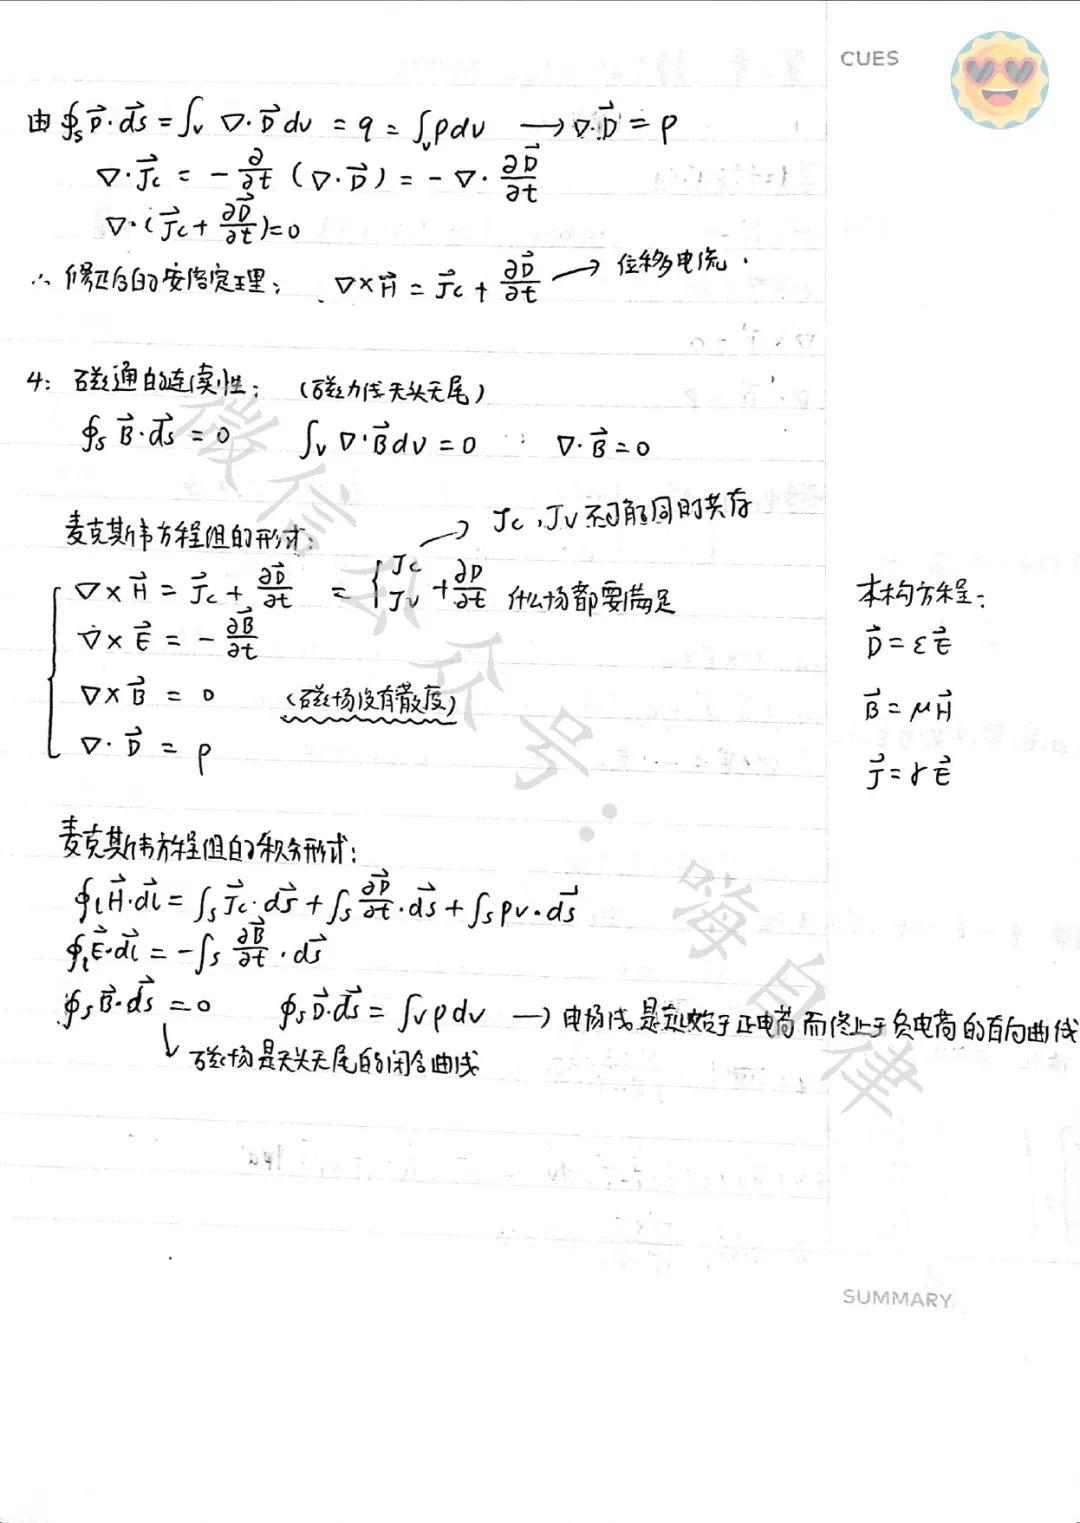 CUES
由 ∮s D⃗·ds⃗ = ∫v ∇·D⃗ dv = q = ∫v ρdv → ∇·D⃗ = ρ
∇·J⃗c = -∂/∂t (∇·D⃗) = -∇·∂D⃗/∂t
∇·(J⃗c + ∂D⃗/∂t)=0
∴ 修正后的安培定理: ∇×H⃗ = J⃗c + ∂D⃗/∂t → 位移电流.
4: 磁通的连续性: (磁力线无头无尾)
∮s B⃗·ds⃗ = 0 ∫v ∇·B⃗dv = 0 ∇·B⃗ = 0
麦克斯韦方程组的形式: → Jc, Jv 不可能同时共存
∇×H⃗ = J⃗c + ∂D⃗/∂t = { Jc Jv + ∂D/∂t 什么场都要满足
∇×E⃗ = -∂B⃗/∂t
∇×B⃗ = 0 (磁场没有散度)
∇·D⃗ = ρ
本构方程:
D⃗ = εE⃗
B⃗ = μH⃗
J⃗ = γE⃗
麦克斯韦方程组的积分形式:
∮l H⃗·dl⃗ = ∫s J⃗c·ds⃗ + ∫s ∂D⃗/∂t·ds⃗ + ∫s ρv·ds⃗
∮l E⃗·dl⃗ = -∫s ∂B⃗/∂t·ds⃗
∮s B⃗·ds⃗ = 0 ∮s D⃗·ds⃗ = ∫v ρdv → 电场线是起始于正电荷而终止于负电荷的有向曲线
↳ 磁场是无头无尾的闭合曲线
微信公众号:嗨自律
SUMMARY